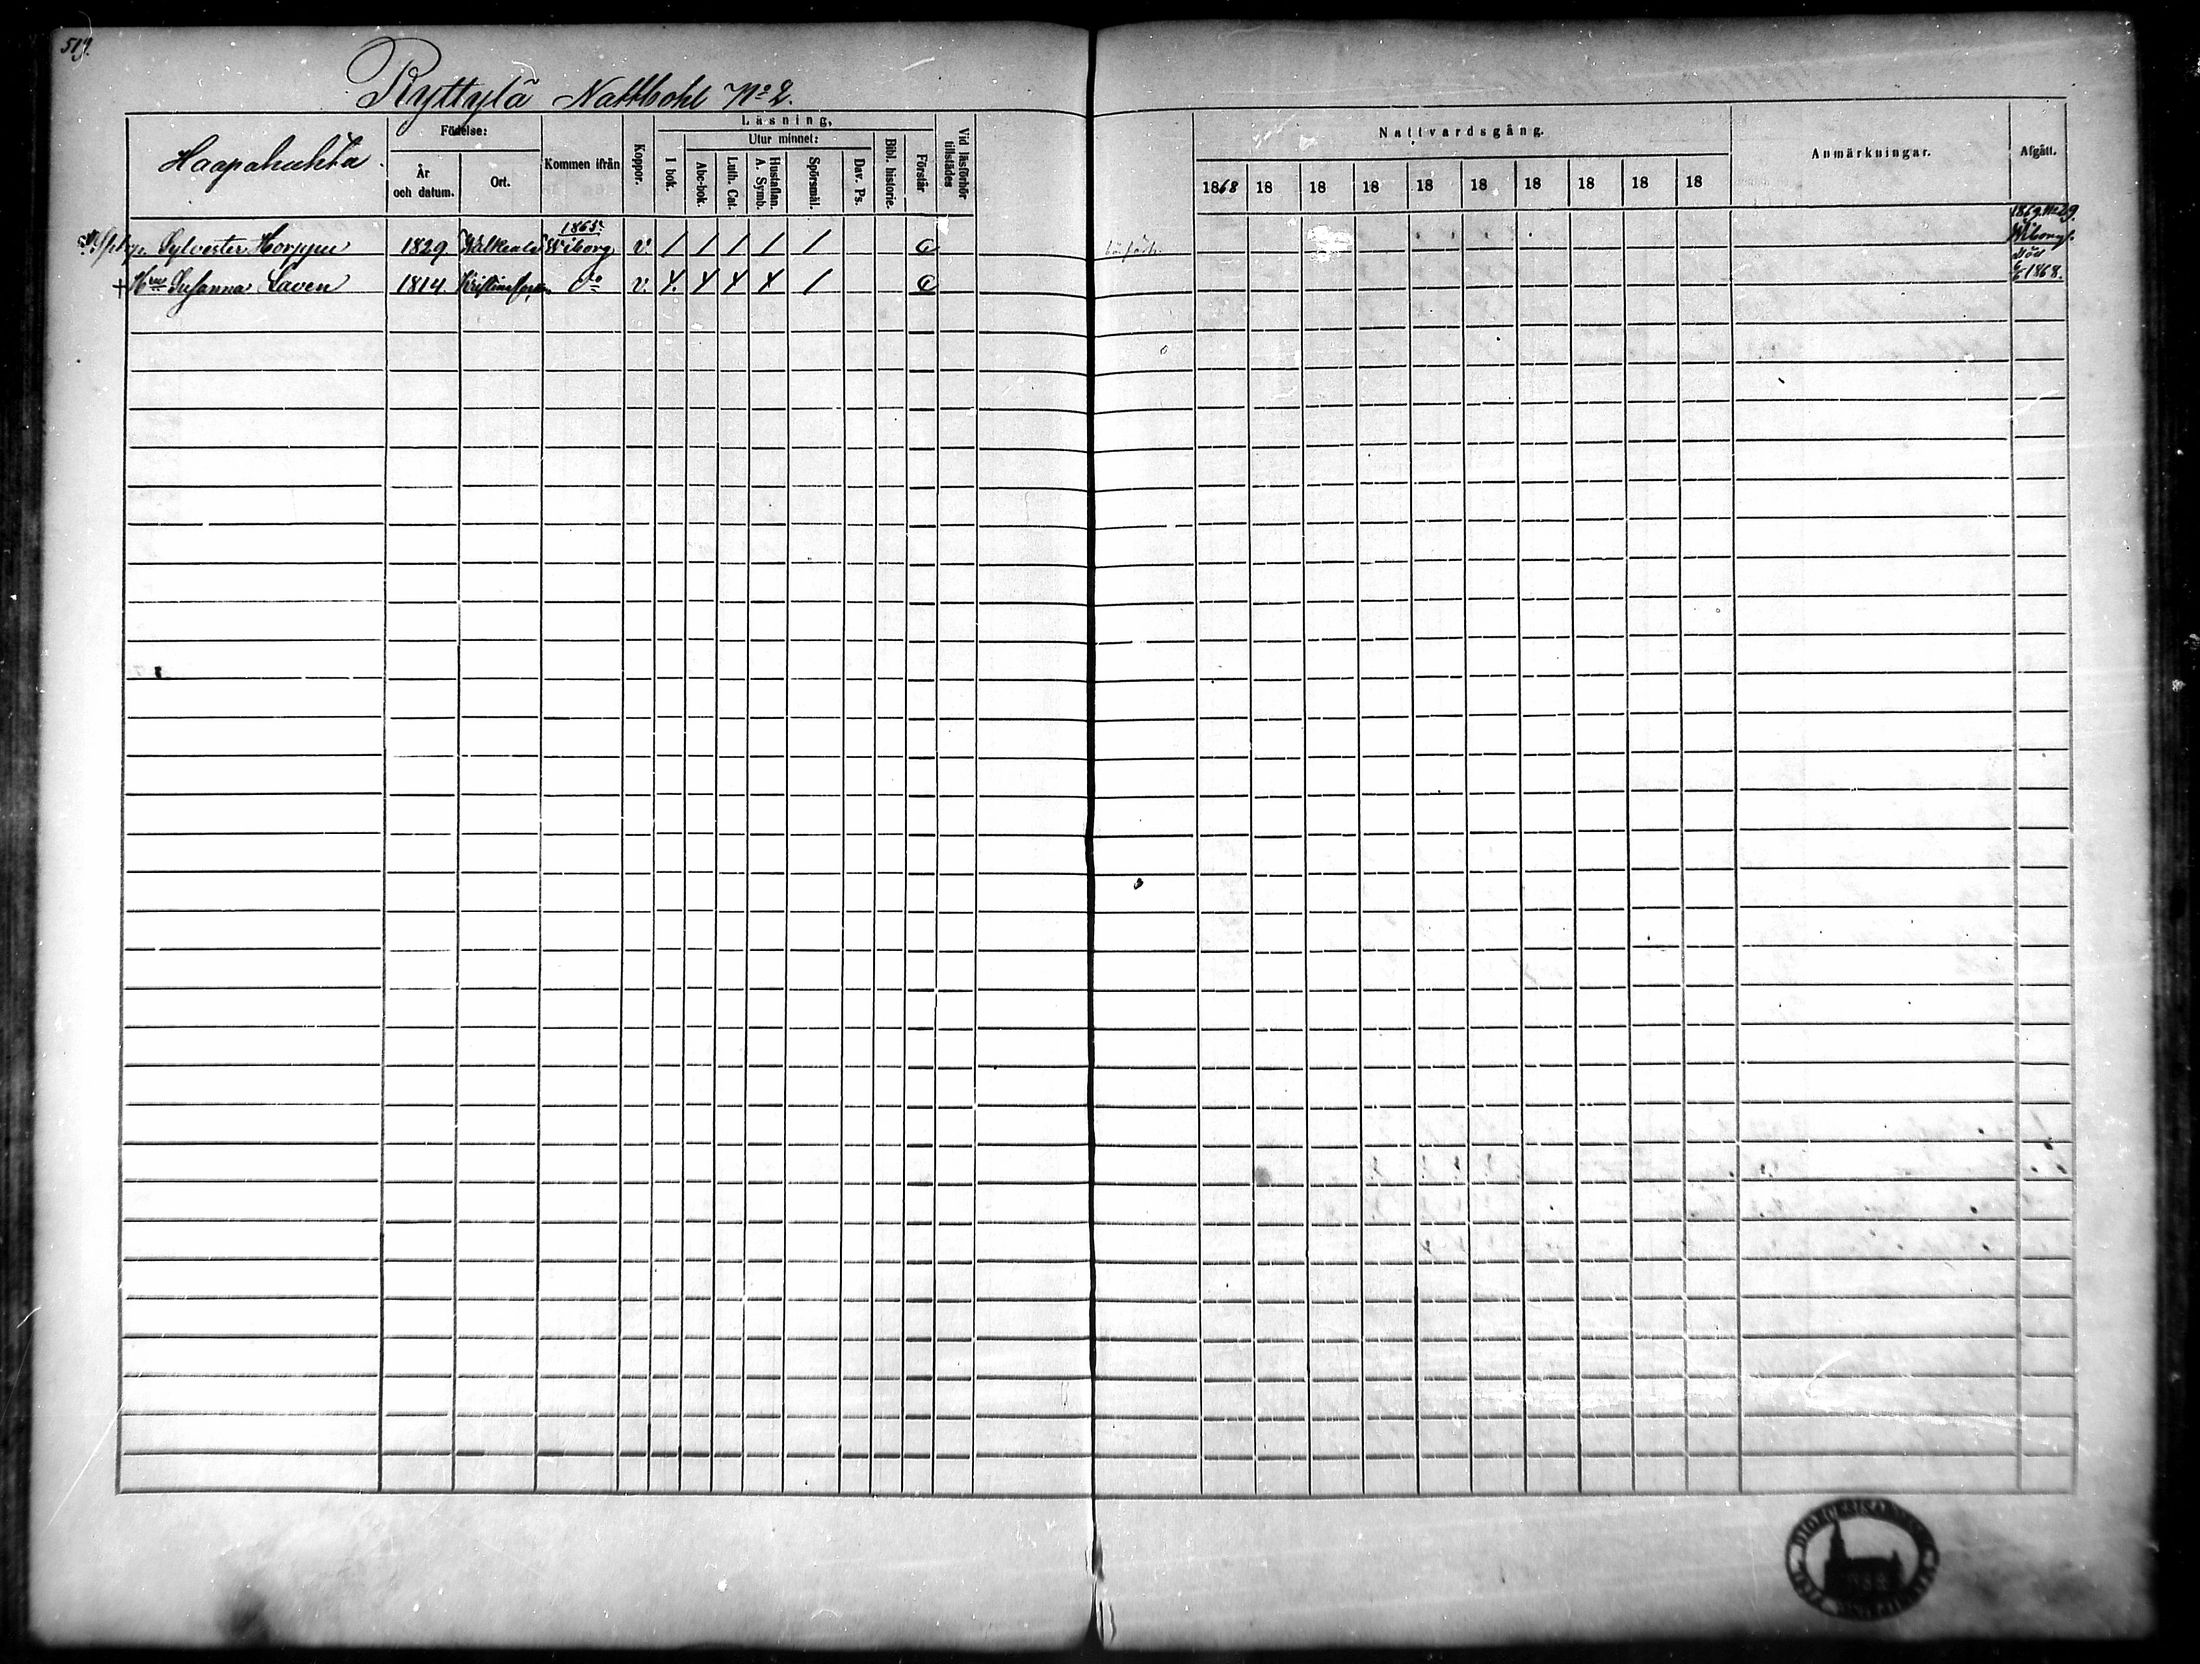 519.
Ryttylä Nattbohl No 2.
Haapahuhta.
Födelse:
År och datum.
Ort.
Kommen ifrån
Koppor.
Läsning,
I bok.
Utur minnet:
Abc-bok.
Luth. Cat.
Hustaflan. A. Symb.
Spörsmål.
Dav. Ps.
Bibl. historie.
Förstår
Vid läsförhör tillstädes
Nattvardsgång.
1868 18 18 18 18 18 18 18 18 18
Anmärkningar.
Afgått.
Sylvester Horppu 1829. Walkeala 1865 Wiborg v. / / / / / 1869. No 29. Wiborg.
+ Hu Susanna Laven 1814. Do v. X X X X / Död 1868.